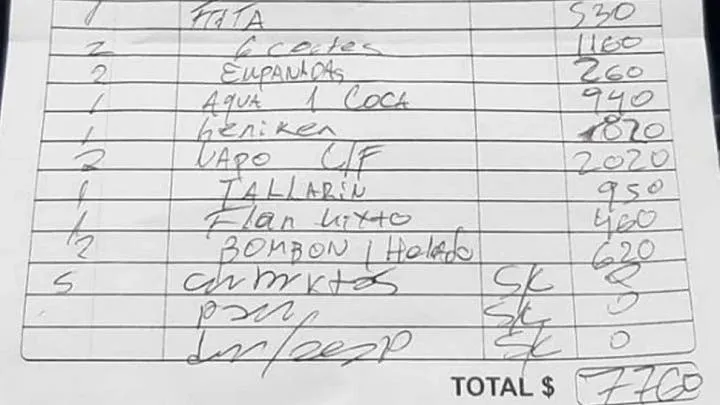 1 FRITA 530
2 Gcortes 1160
2 EMPANADAS 260
1 AGUA 1 COCA 940
1 heniken 820
2 VAPO C/F 2020
1 TALLARIN 950
1 Flan Mixto 460
2 BOMBON / Helado 620
5 cubiertos SK 0
pan SK 0
SK 0
TOTAL $ 7760